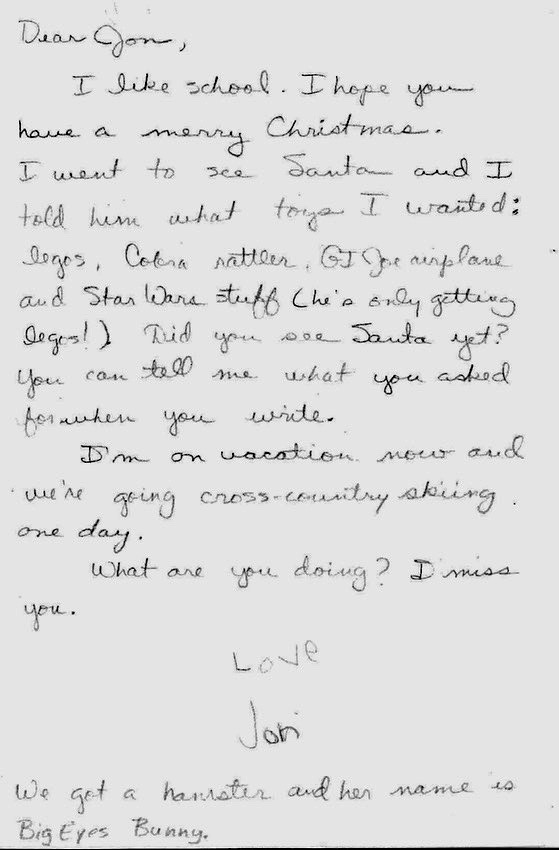 Dear Jon,
I like school. I hope you
have a merry Christmas.
I went to see Santa and I
told him what toys I wanted:
legos, Cobra rattler, GI Joe airplane
and Star Wars stuff (he's only getting
legos!). Did you see Santa yet?
You can tell me what you asked
for when you write.
I'm on vacation now and
we're going cross-country skiing
one day.
What are you doing? I miss
you.
Love
Jon
We got a hamster and her name is
Big Eyes Bunny.